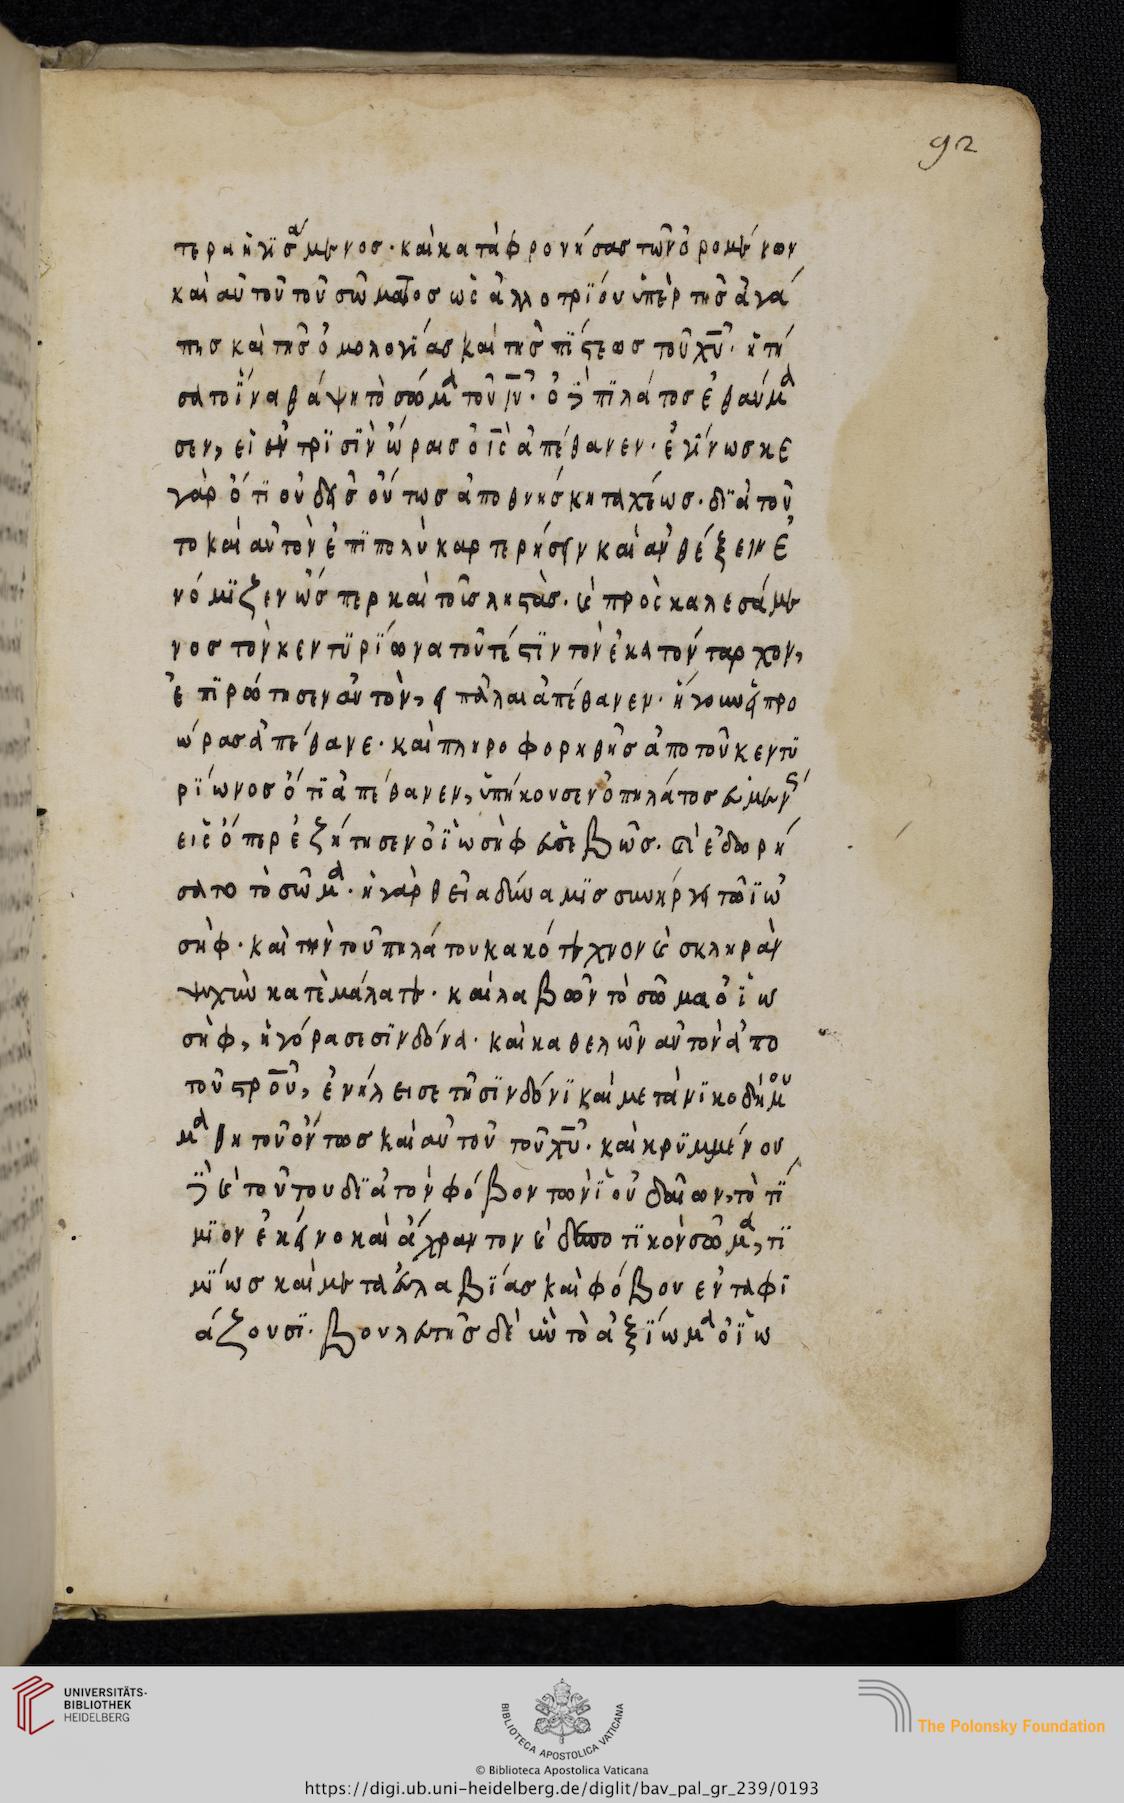 92
τερα ἡγισάμενος· καὶ καταφρονήσας τῶν ὁρομένων
καὶ αὐτοῦ τοῦ σώματος ὡς ἀλλοτρίου ὑπὲρ τῆς ἀγά
πης καὶ τῆς ὁμολογίας καὶ τῆς πίστεως τοῦ χῦ· ἠτή
σατο ἵνα θάψη τὸ σῶμα τοῦ ιῦ· ὁ δὲ πιλάτος ἐθαύμα
σεν, εἰ ἐν τρισὶν ὥραις ὁ ις ἀπέθανεν· ἐγίνωσκε
γὰρ ὅτι οὐδεὶς οὕτως ἀποθνήσκη ταχέως· διὰ τοῦ
το καὶ αὐτὸν ἐπιπολὺ καρτερήσειν καὶ ἀνθέξειν ἐ
νόμιζεν ὥσπερ καὶ τοῖς ληστὰς· καὶ προσκαλεσάμε
νος τὸν κεντυρίωνα τουτέστιν τὸν ἑκατόνταρχον,
ἐπιρώτησεν αὐτὸν, εἰ πάλαι ἀπέθανεν· ἤγουν εἰ προ
ώρας ἀπέθανε· καὶ πληροφορηθεὶς ἀπο τοῦ κεντυ
ρίωνος ὅτι ἀπέθανεν, ὑπήκουσεν ὁ πηλάτος εὐμεν
εις ὅπερ ἐζήτησεν ὁ ἰωσὴφ εὐσεβῶς· καὶ ἐδωρή
σατο τὸ σῶμα· ἡ γὰρ θεία δύναμις συνήργει τῶ ἰω
σὴφ· καὶ τὴν τοῦ πηλάτου κακότεχνον καὶ σκληρὰν
ψυχὴν κατεμάλατε· καὶ λαβῶν τὸ σῶμα ὁ ἰω
σὴφ, ἠγόρασε σινδόνα· καὶ καθελῶν αὐτὸν ἀπο
τοῦ στροῦ, ἐνήλεισε τῆ σινδόνι καὶ μετὰ νικοδήμου
μαθητοῦ ὄντως καὶ αὐτοῦ τοῦ χῦ· καὶ κρυμμένου
δὲ καὶ τούτου διὰ τὸν φόβον τῶν ἰουδαίων, τὸ τί
μιον ἐκεῖνο καὶ ἄχραντον καὶ δεσποτικὸν σῶμα, τι
μίως καὶ μετα εὐλαβίας καὶ φόβου ενταφι
άζουσι· βουλευτὴς δὲ ἦν τὸ ἀξίωμα ὁ ἰω
UNIVERSITÄTS-
BIBLIOTHEK
HEIDELBERG
BIBLIOTECA APOSTOLICA VATICANA
The Polonsky Foundation
© Biblioteca Apostolica Vaticana
https://digi.ub.uni-heidelberg.de/diglit/bav_pal_gr_239/0193